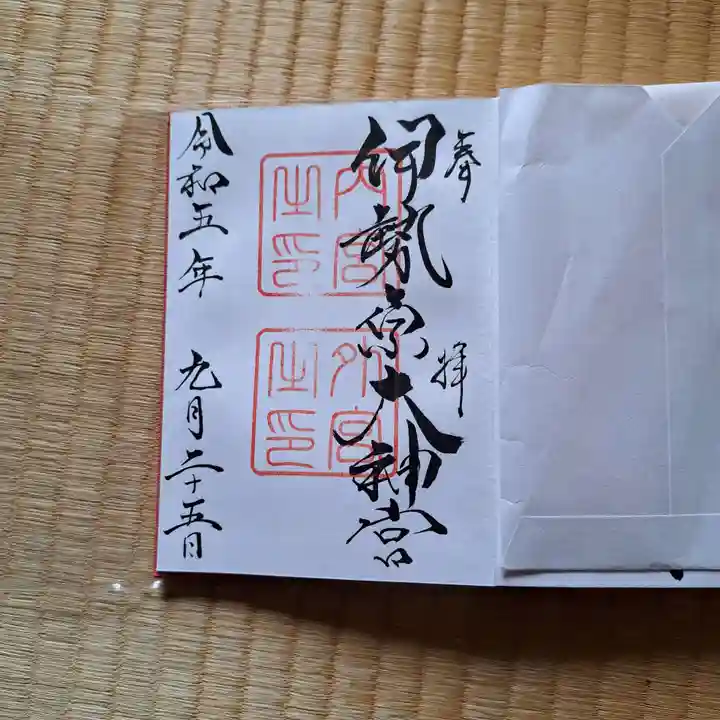 奉拝
伊勢原大神宮
内宮之印
外宮之印
令和五年 九月二十五日